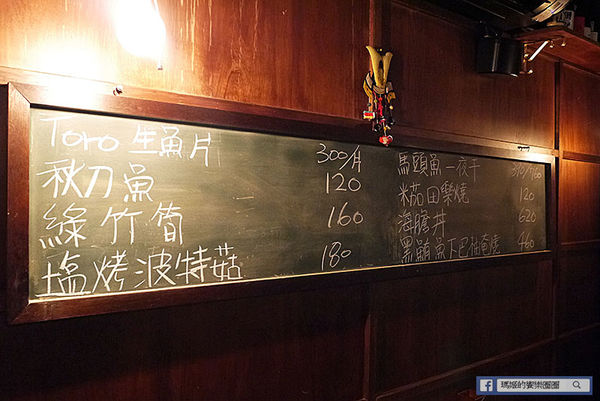 Toro 生魚片 300/片
秋刀魚 120
綠竹筍 160
塩烤波特菇 180
馬頭魚一夜干
茄田樂燒 120
海膽丼 620
黑鮪魚下巴柚庵燒 460
瑪姬的饗樂圈圈